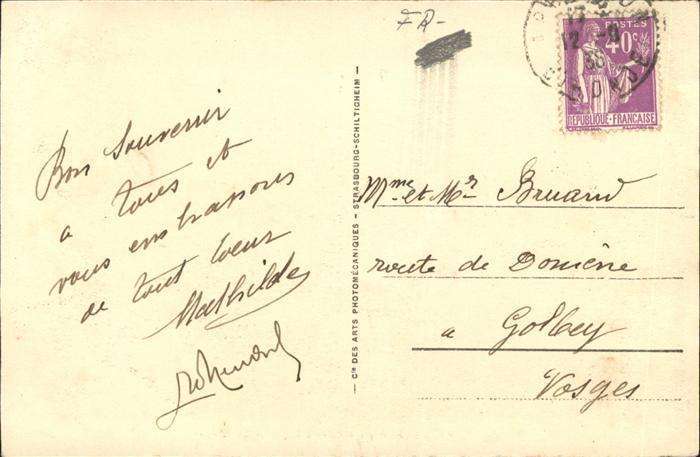 FR-
Bon souvenir
à tous et
vous embrassons
de tout coeur
Mathilde
Cie DES ARTS PHOTOMÉCANIQUES - STRASBOURG-SCHILTIGHEIM
POSTES
40c
RÉPUBLIQUE-FRANÇAISE
Mme et Mr Bruand
route de
à Golbey
Vosges